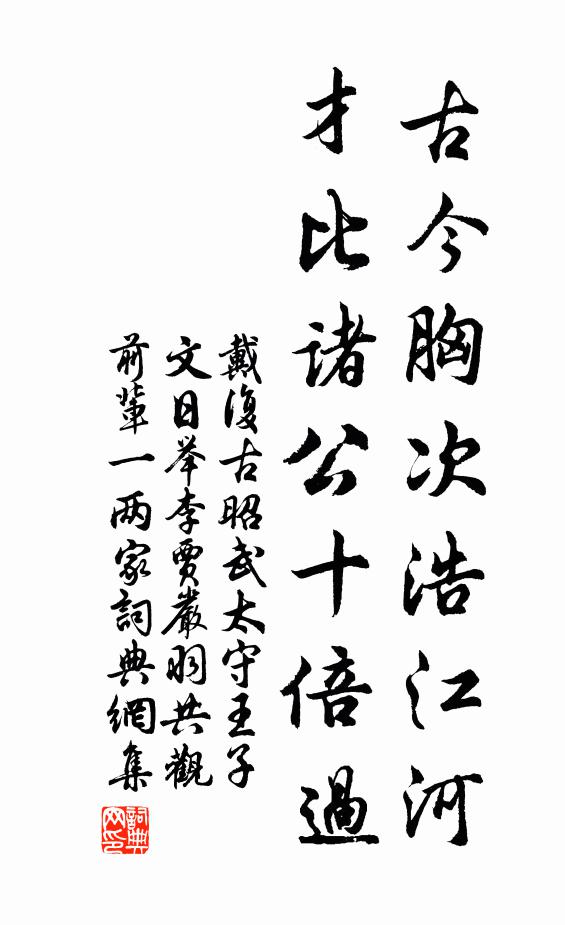 古今胸次浩江河
才比诸公十倍過
戴復古昭武太守王子
文日举李賈嚴羽共觀
前輩一两家詞典網集
詞典網印